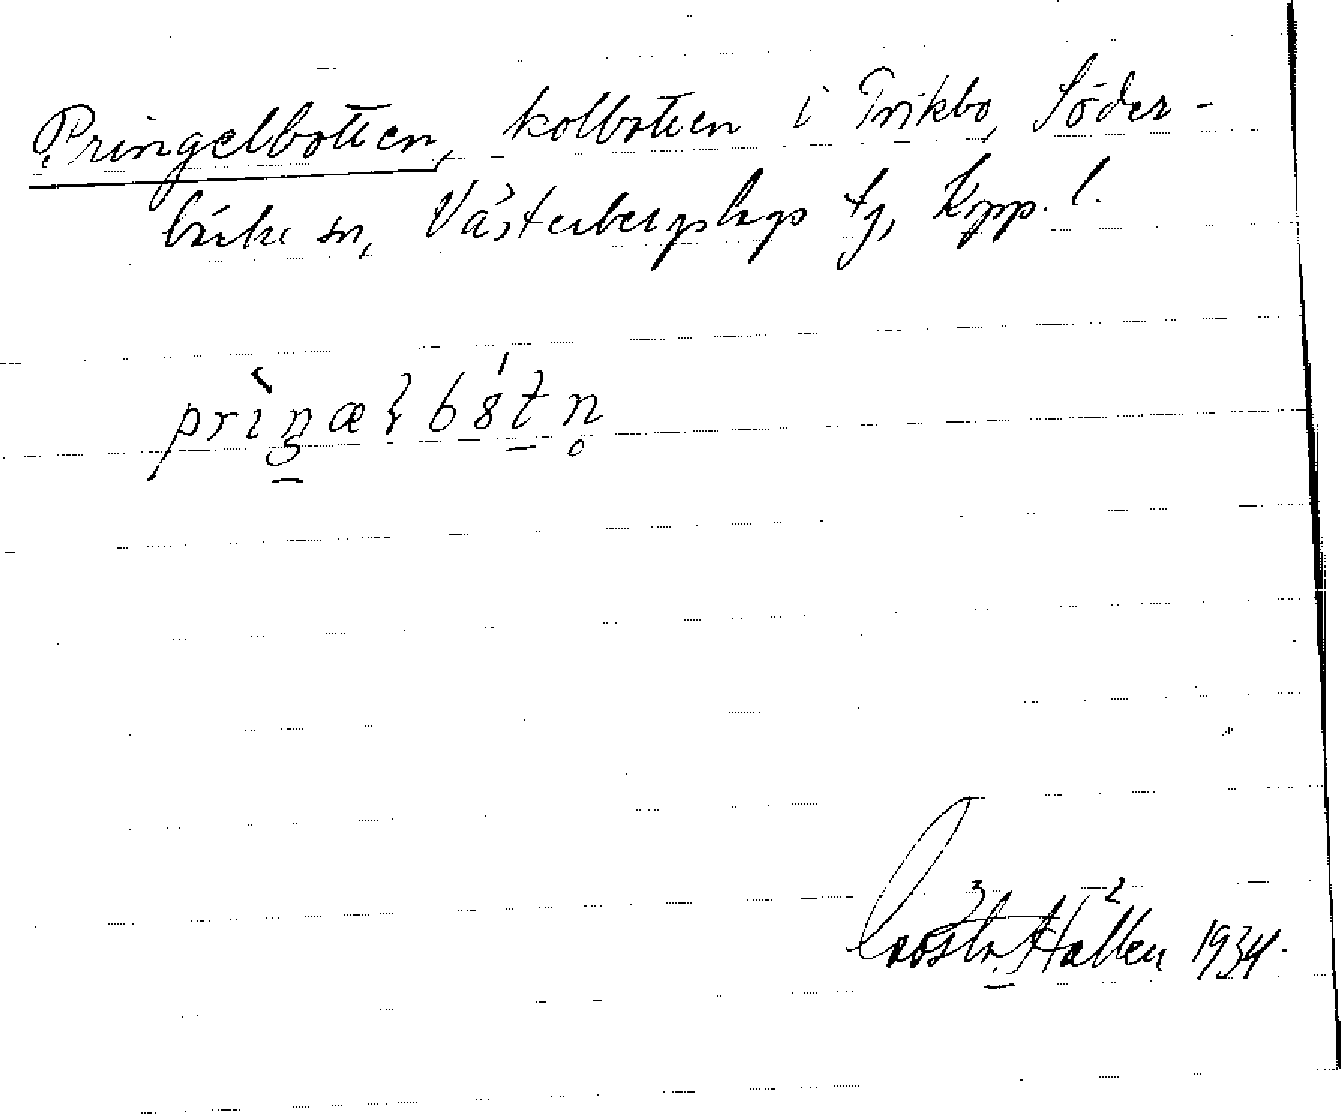 Pringelbotten, kolbotten i Prikbo, Söder-
bärke sn, Västerbergslags tg, Kopp. l.
prìŋæɫbótn̥
Gösta Hallen 1934.